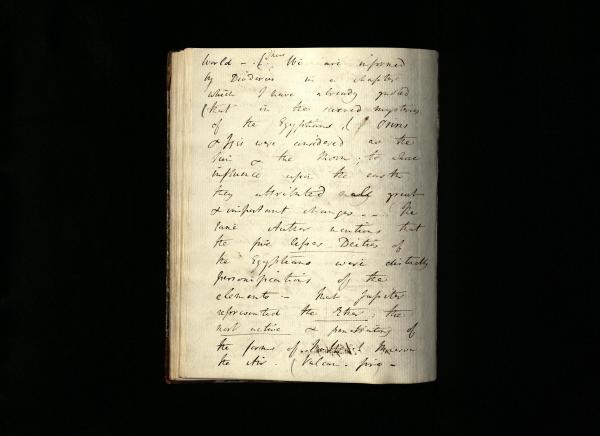 World – . (
We are informed
by Diodorus in a chapter
which I have already quoted
(that in the sacred mysteries
of the Egyptians, ( Osiris
& Isis were considered as the
Sun & the Moon; to whose
influence upon the earth
they attributed all great
& important changes – . The
same Author mentions that
the five lesser Deities of
the Egyptians were distinctly
personifications of the
elements – that Jupiter
represented the Ether, the
most active & penetrating of
the forms of Minerva
the Air. (Vulcan – fire –